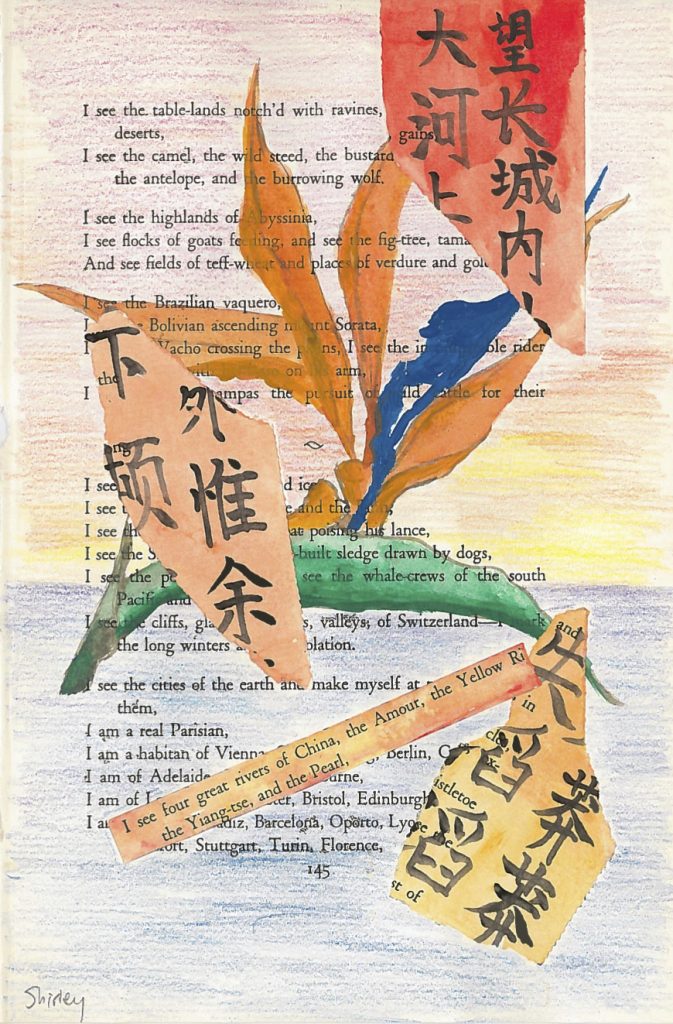 望长城内
大河上
I see the table-lands notch'd with ravines,
deserts,
gains
I see the camel, the wild steed, the bustard
the antelope, and the burrowing wolf.
I see the highlands of Abyssinia,
I see flocks of goats feeding, and see the fig-tree,
And see fields of teff-wheat and places of verdure and
I see the Brazilian vaquero,
Bolivian ascending mount Sorata,
I Wacho crossing the plains, I see the rider
the on his arm,
I pampas the pursuit of wild cattle for their
外惟余
下顿
I see
I see and the
I see poising his lance,
I see the -built sledge drawn by dogs,
I see the see the whale-crews of the south
Pacific and
I see the cliffs, valleys, of Switzerland—I mark
the long winters
I see the cities of the earth and make myself at
them,
I am a real Parisian,
I am a habitan of Vienna, Berlin,
I am of Adelaide
I am of Bristol, Edinburgh
I am Cadiz, Barcelona, Oporto, Lyons
Stuttgart, Turin, Florence,
145
I see four great rivers of China, the Amour, the Yellow Ri
the Yiang-tse, and the Pearl,
and
in
莽莽
失滔滔
st of
Shirley